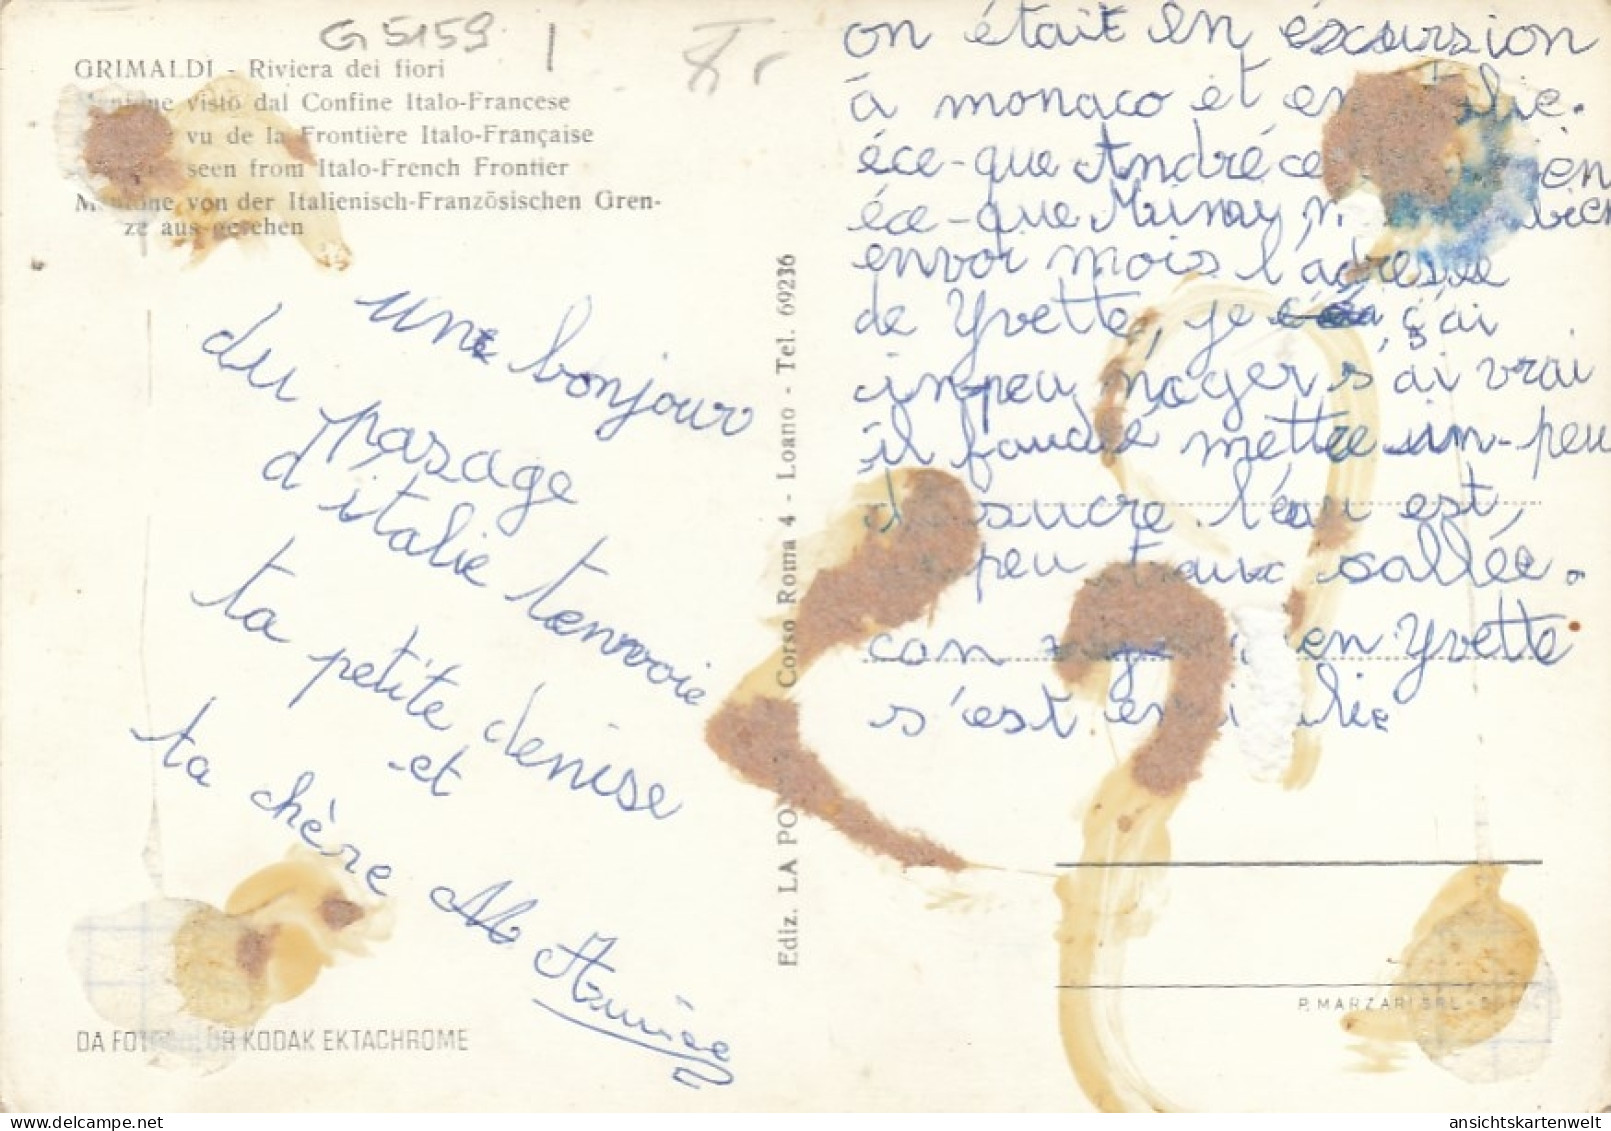 G 5159
GRIMALDI - Riviera dei fiori
visto dal Confine Italo-Francese
vu de la Frontière Italo-Française
seen from Italo-French Frontier
Mentone von der Italienisch-Französischen Gren-
ze aus gesehen
une bonjour
du pasage
d'italie t'envoie
ta petite denise
et
ta chère
DA FOTOCOLOR KODAK EKTACHROME
Ediz. LA PO Corso Roma 4 - Loano - Tel. 69236
on était en excursion
à monaco et en italie.
éce-que André ce en
éce-que Minou, m
envoi mois l'adresse
de Yvette, je ç'ai
in-peu nager s'ai vrai
il faudré mettre un-peu
du sucre l'eau est,
peu traux sallée.
can en Yvette
s'est en italie
P. MARZARI S.R.L.
ansichtskartenwelt